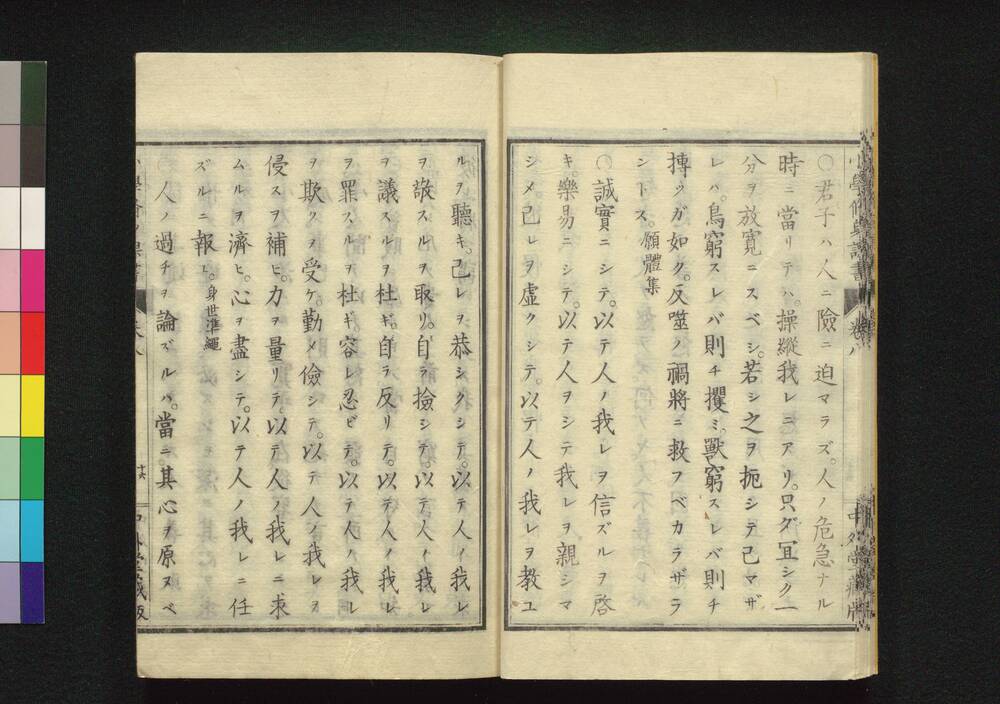 〇君子ハ人ニ險ニ迫マラズ。人ノ危急ナル
時ニ當リテハ。操縱我レニアリ。只ダ冝シク一
分ヲ放寛ニスベシ。若シ之ヲ扼シテ己マザ
レハ。鳥窮スレバ則チ攫ミ。獸窮スレバ則チ
摶ツガ如ク。反噬ノ禍將ニ救フベカラザラ
ントス。願體集
〇誠實ニシテ。以テ人ノ我レヲ信ズルヲ啓
キ。樂易ニシテ。以テ人ヲシテ我レヲ親シマ
シメ。己レヲ虚クシテ。以テ人ノ我レヲ教ユ
ルヲ聽キ。己レヲ恭シクシテ。以テ人ノ我レ
ヲ敬スルヲ取リ。自ラ撿シテ。以テ人ノ我レ
ヲ議スルヲ杜ギ。自ラ反リテ。以テ人ノ我レ
ヲ罪スルヲ杜ギ。容レ忍ビテ。以テ人ノ我レ
ヲ欺クヲ受ケ。勤メ儉シテ。以テ人ノ我レヲ
侵スヲ補ヒ。力ヲ量リテ。以テ人ノ我レニ求
ムルヲ濟ヒ。心ヲ盡シテ。以テ人ノ我レニ任
ズルニ報ヒ。身世準繩
〇人ノ過チヲ論ズルハ。當ニ其心ヲ原ヌベ